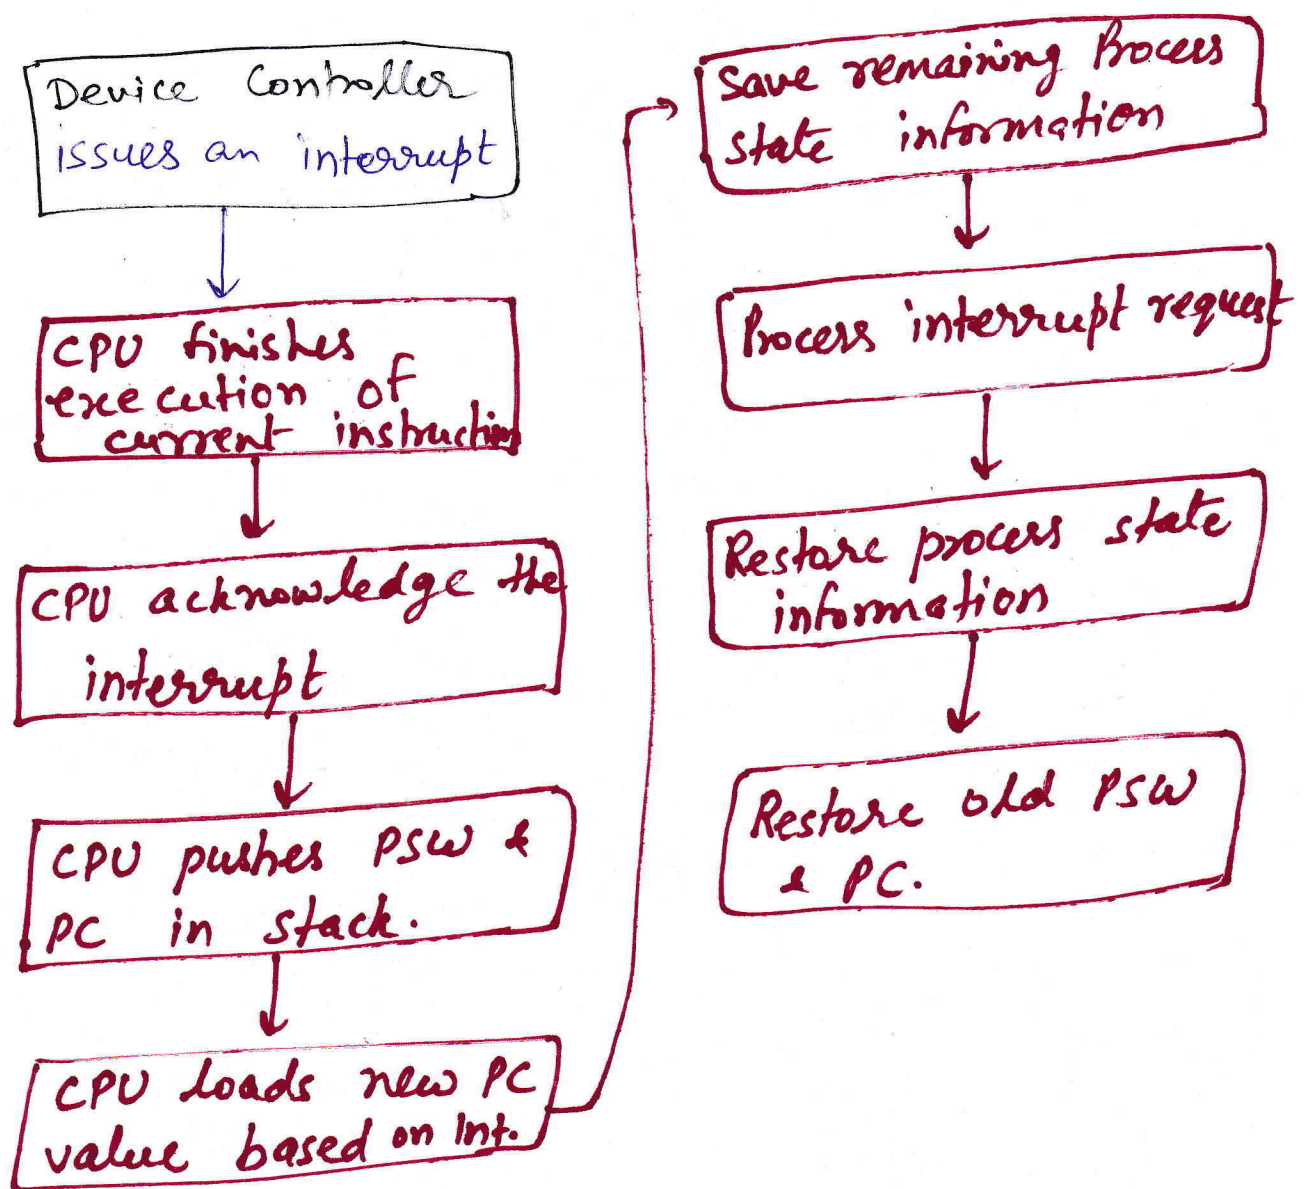 Device Controller
issues an interrupt
CPU finishes
execution of
current instruction
CPU acknowledge the
interrupt
CPU pushes PSW &
PC in stack.
CPU loads new PC
value based on Int.
Save remaining Process
state information
Process interrupt request
Restore process state
information
Restore old PSW
& PC.